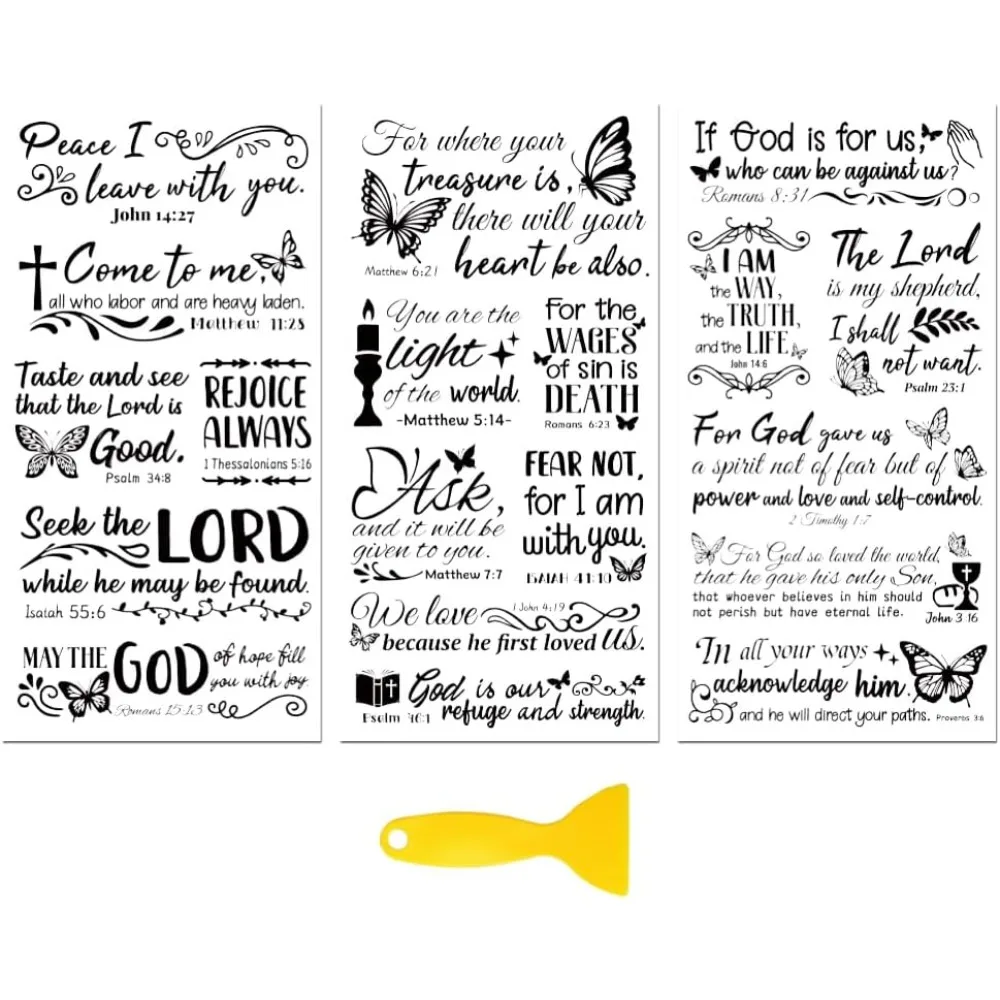 Peace I
leave with you.
John 14:27
Come to me,
all who labor and are heavy laden.
Matthew 11:28
Taste and see
that the Lord is
Good.
Psalm 34:8
REJOICE
ALWAYS
1 Thessalonians 5:16
Seek the LORD
while he may be found.
Isaiah 55:6
MAY THE GOD of hope fill
you with joy
Romans 15:13
For where your
treasure is,
there will your
heart be also.
Matthew 6:21
You are the
light
of the world.
-Matthew 5:14-
For the
WAGES
of sin is
DEATH
Romans 6:23
Ask,
and it will be
given to you.
Matthew 7:7
FEAR NOT,
for I am
with you.
ISAIAH 41:10
We love 1 John 4:19
because he first loved us.
God is our
refuge and strength.
Psalm 46:1
If God is for us,
who can be against us?
Romans 8:31
I AM
the WAY,
the TRUTH,
and the LIFE
John 14:6
The Lord
is my shepherd,
I shall
not want.
Psalm 23:1
For God gave us
a spirit not of fear but of
power and love and self-control.
2 Timothy 1:7
For God so loved the world,
that he gave his only Son,
that whoever believes in him should
not perish but have eternal life.
John 3:16
In all your ways
acknowledge him.
and he will direct your paths. Proverbs 3:6